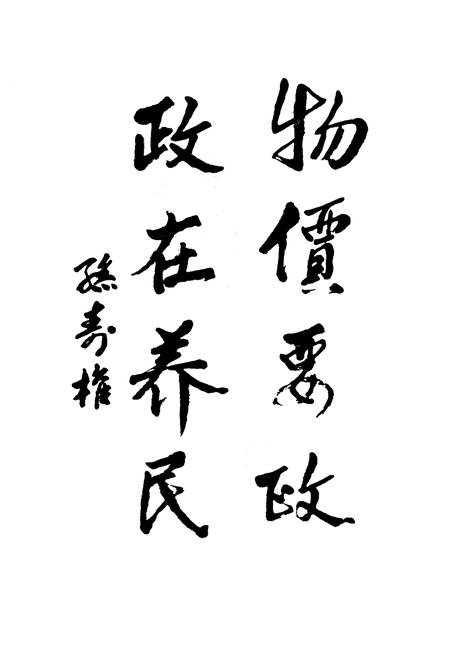 物價要政
政在养民
孫寿权